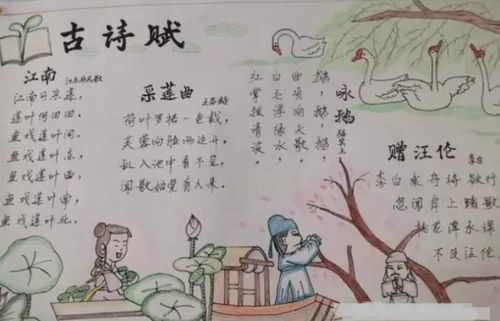 古诗赋
江南
汉乐府民歌
江南可采莲，
莲叶何田田。
鱼戏莲叶间。
鱼戏莲叶东，
鱼戏莲叶西，
鱼戏莲叶南，
鱼戏莲叶北。
采莲曲
王昌龄
荷叶罗裙一色裁，
芙蓉向脸两边开。
乱入池中看不见，
闻歌始觉有人来。
咏鹅
骆宾王
鹅，鹅，鹅，
曲项向天歌。
白毛浮绿水，
红掌拨清波。
赠汪伦
李白
李白乘舟将欲行
忽闻岸上踏歌
桃花潭水深
不及汪伦